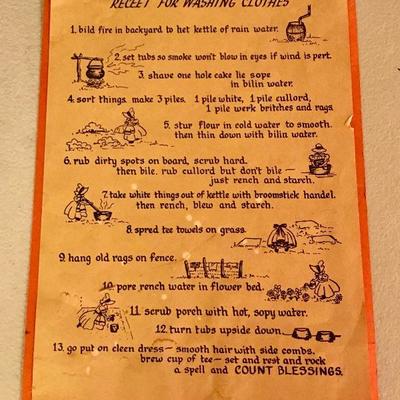 RECEET FOR WASHING CLOTHES
1. bild fire in backyard to het kettle of rain water.
2. set tubs so smoke won't blow in eyes if wind is pert.
3. shave one hole cake lie sope
in bilin water.
4. sort things. make 3 piles. 1 pile white, 1 pile cullord,
1 pile werk britches and rags.
5. stur flour in cold water to smooth.
then thin down with bilin water.
6. rub dirty spots on board, scrub hard.
then bile. rub cullord but don't bile —
just rench and starch.
7. take white things out of kettle with broomstick handel.
then rench, blew and starch.
8. spred tee towels on grass.
9. hang old rags on fence.
10. pore rench water in flower bed.
11. scrub porch with hot, sopy water.
12. turn tubs upside down.
13. go put on cleen dress — smooth hair with side combs.
brew cup of tee — set and rest and rock
a spell and COUNT BLESSINGS.